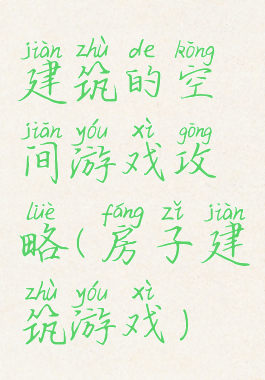 jiàn zhù de kōng
建筑的空
jiān yóu xì gōng
间游戏攻
lüè fáng zǐ jiàn
略(房子建
zhù yóu xì
筑游戏)